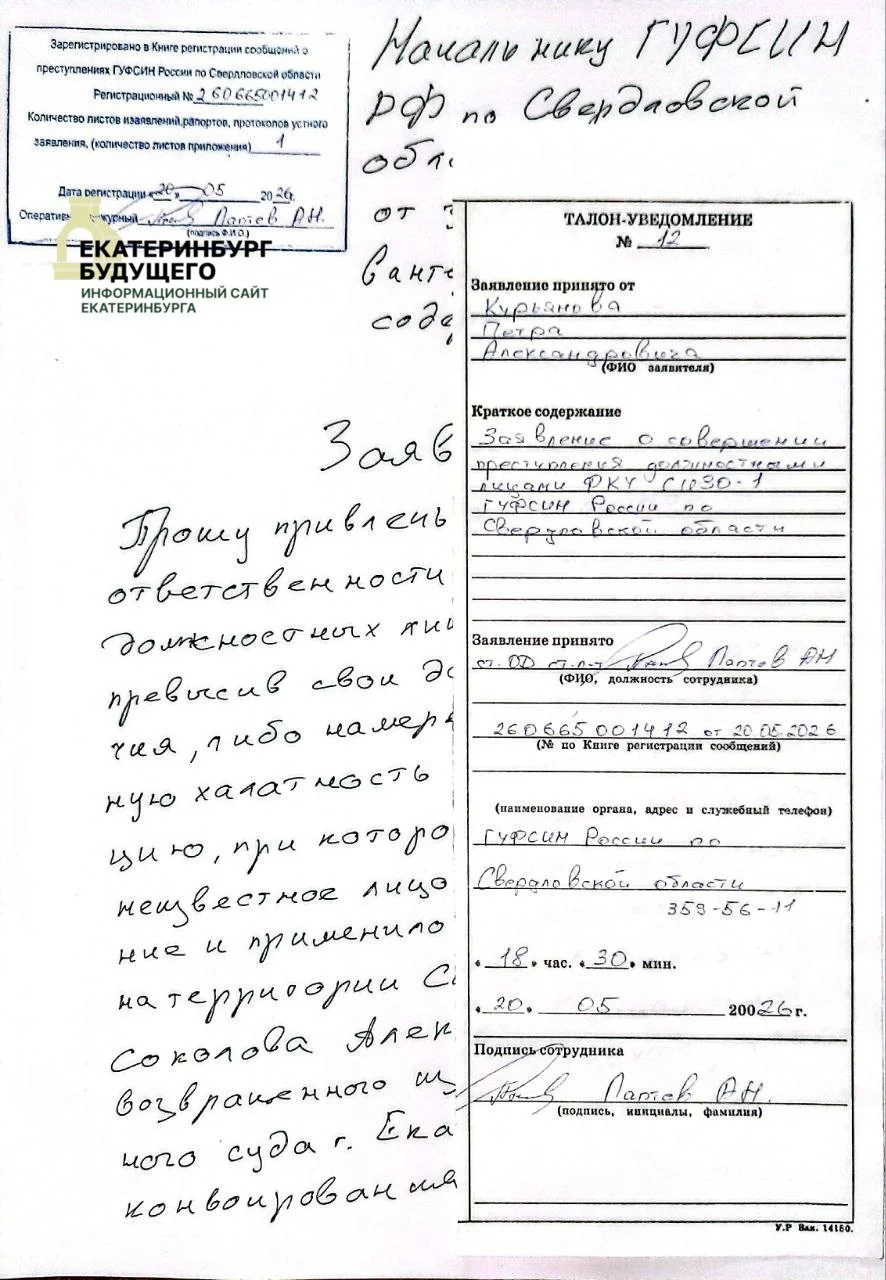 Зарегистрировано в Книге регистрации сообщений о
преступлениях ГУФСИН России по Свердловской области
Регистрационный № 260665001412
Количество листов изаявлений,рапортов, протоколов устного
заявления, (количество листов приложения) 1
Дата регистрации «20» 05 2026г.
Оперативный дежурный Лаптев А.Н.
(подпись Ф.И.О.)
ЕКАТЕРИНБУРГ
БУДУЩЕГО
ИНФОРМАЦИОННЫЙ САЙТ
ЕКАТЕРИНБУРГА
Начальнику ГУФСИН
РФ по Свердловской
обл
от
ванте
соде
Заяв
Прошу привлечь
ответственности
должностных лиц
превысив свои до
чия, либо намер
ную халатность
цию, при которо
неизвестное лицо
ние и применило
на территории С
Соколова Алек
возвращенного из
ного суда г. Ека
конвоирования
ТАЛОН-УВЕДОМЛЕНИЕ
№ 12
Заявление принято от
Курьянова
Петра
Александровича
(ФИО заявителя)
Краткое содержание
Заявление о совершении
преступления должностными
лицами ФКУ СИЗО-1
ГУФСИН России по
Свердловской области
Заявление принято
ст. ОД ст. л-т Лаптев АН
(ФИО, должность сотрудника)
260665001412 от 20.05.2026
(№ по Книге регистрации сообщений)
(наименование органа, адрес и служебный телефон)
ГУФСИН России по
Свердловской области
359-56-11
«18» час. «30» мин.
«20» 05 20026г.
Подпись сотрудника
Лаптев А.Н.
(подпись, инициалы, фамилия)
У.Р Зак. 14180.